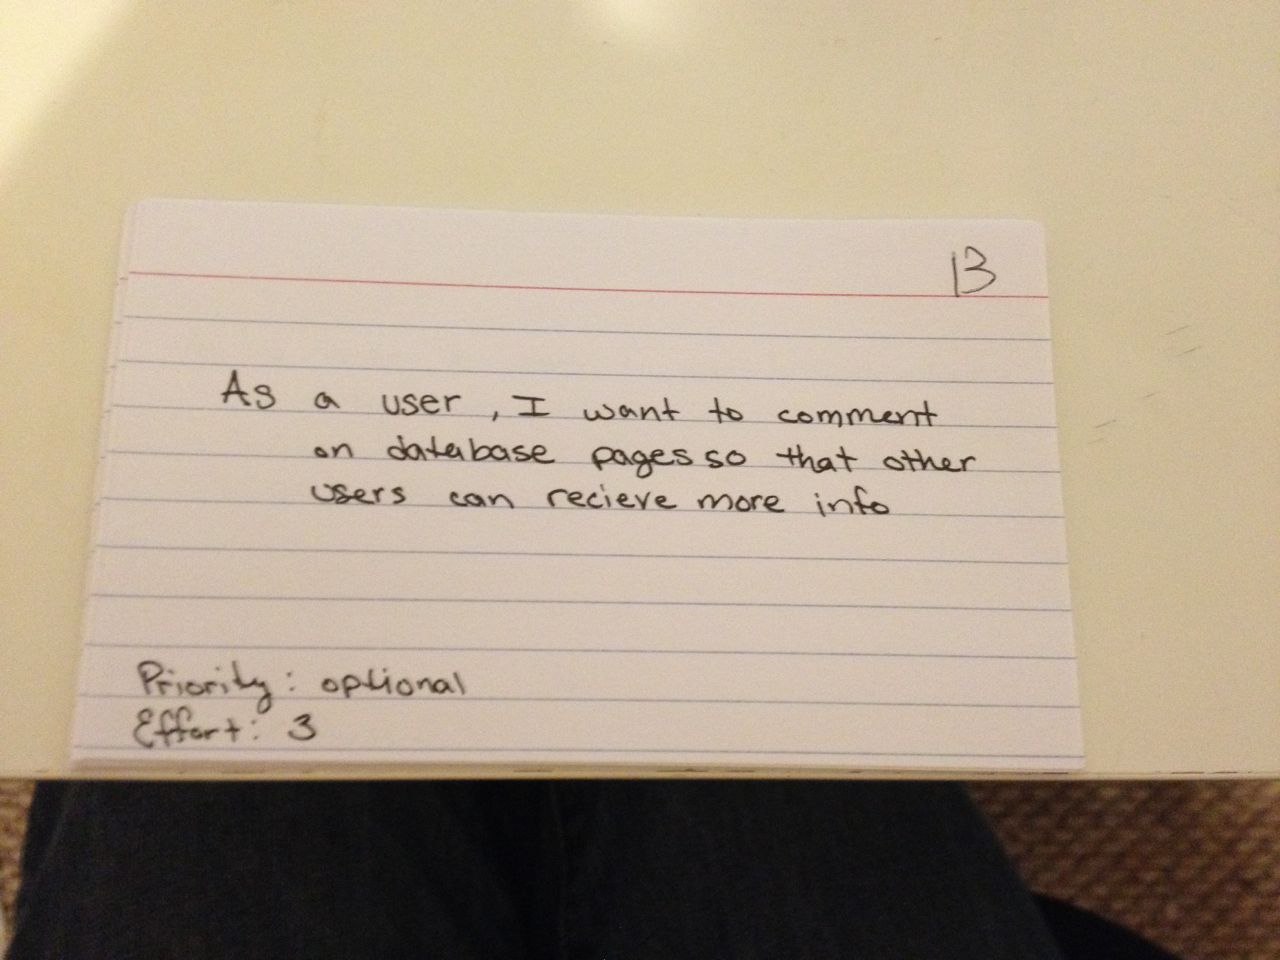 13
As a user, I want to comment
on database pages so that other
users can recieve more info
Priority: optional
Effort: 3